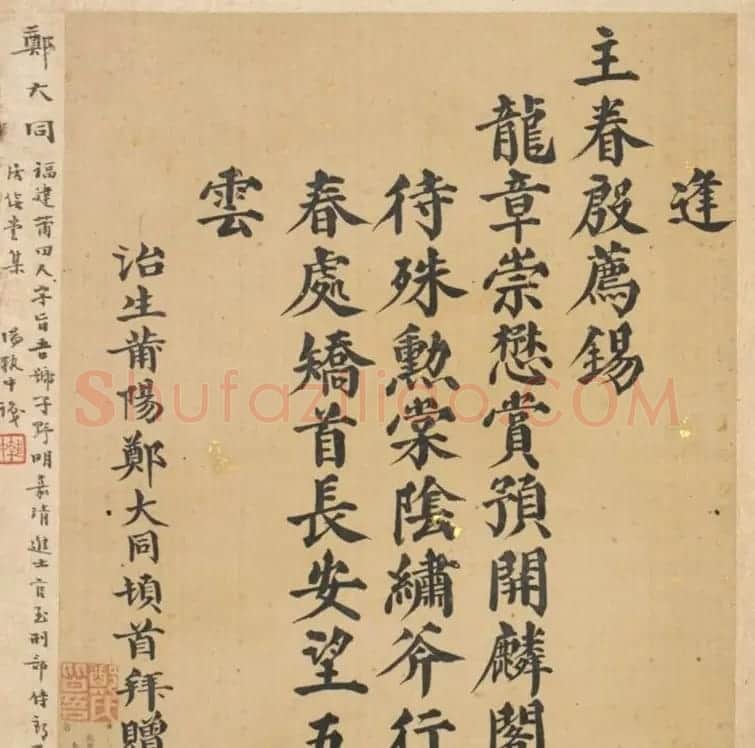 逢
主眷殷薦錫
龍章崇懋賞預開麟閣
待殊勳棠陰繡斧行
春處矯首長安望五
雲
治生莆陽鄭大同頓首拜贈
鄭大同
福建莆田人字旨吾號子野明嘉靖進士官至刑部侍郎
集
Shufaziliao.COM